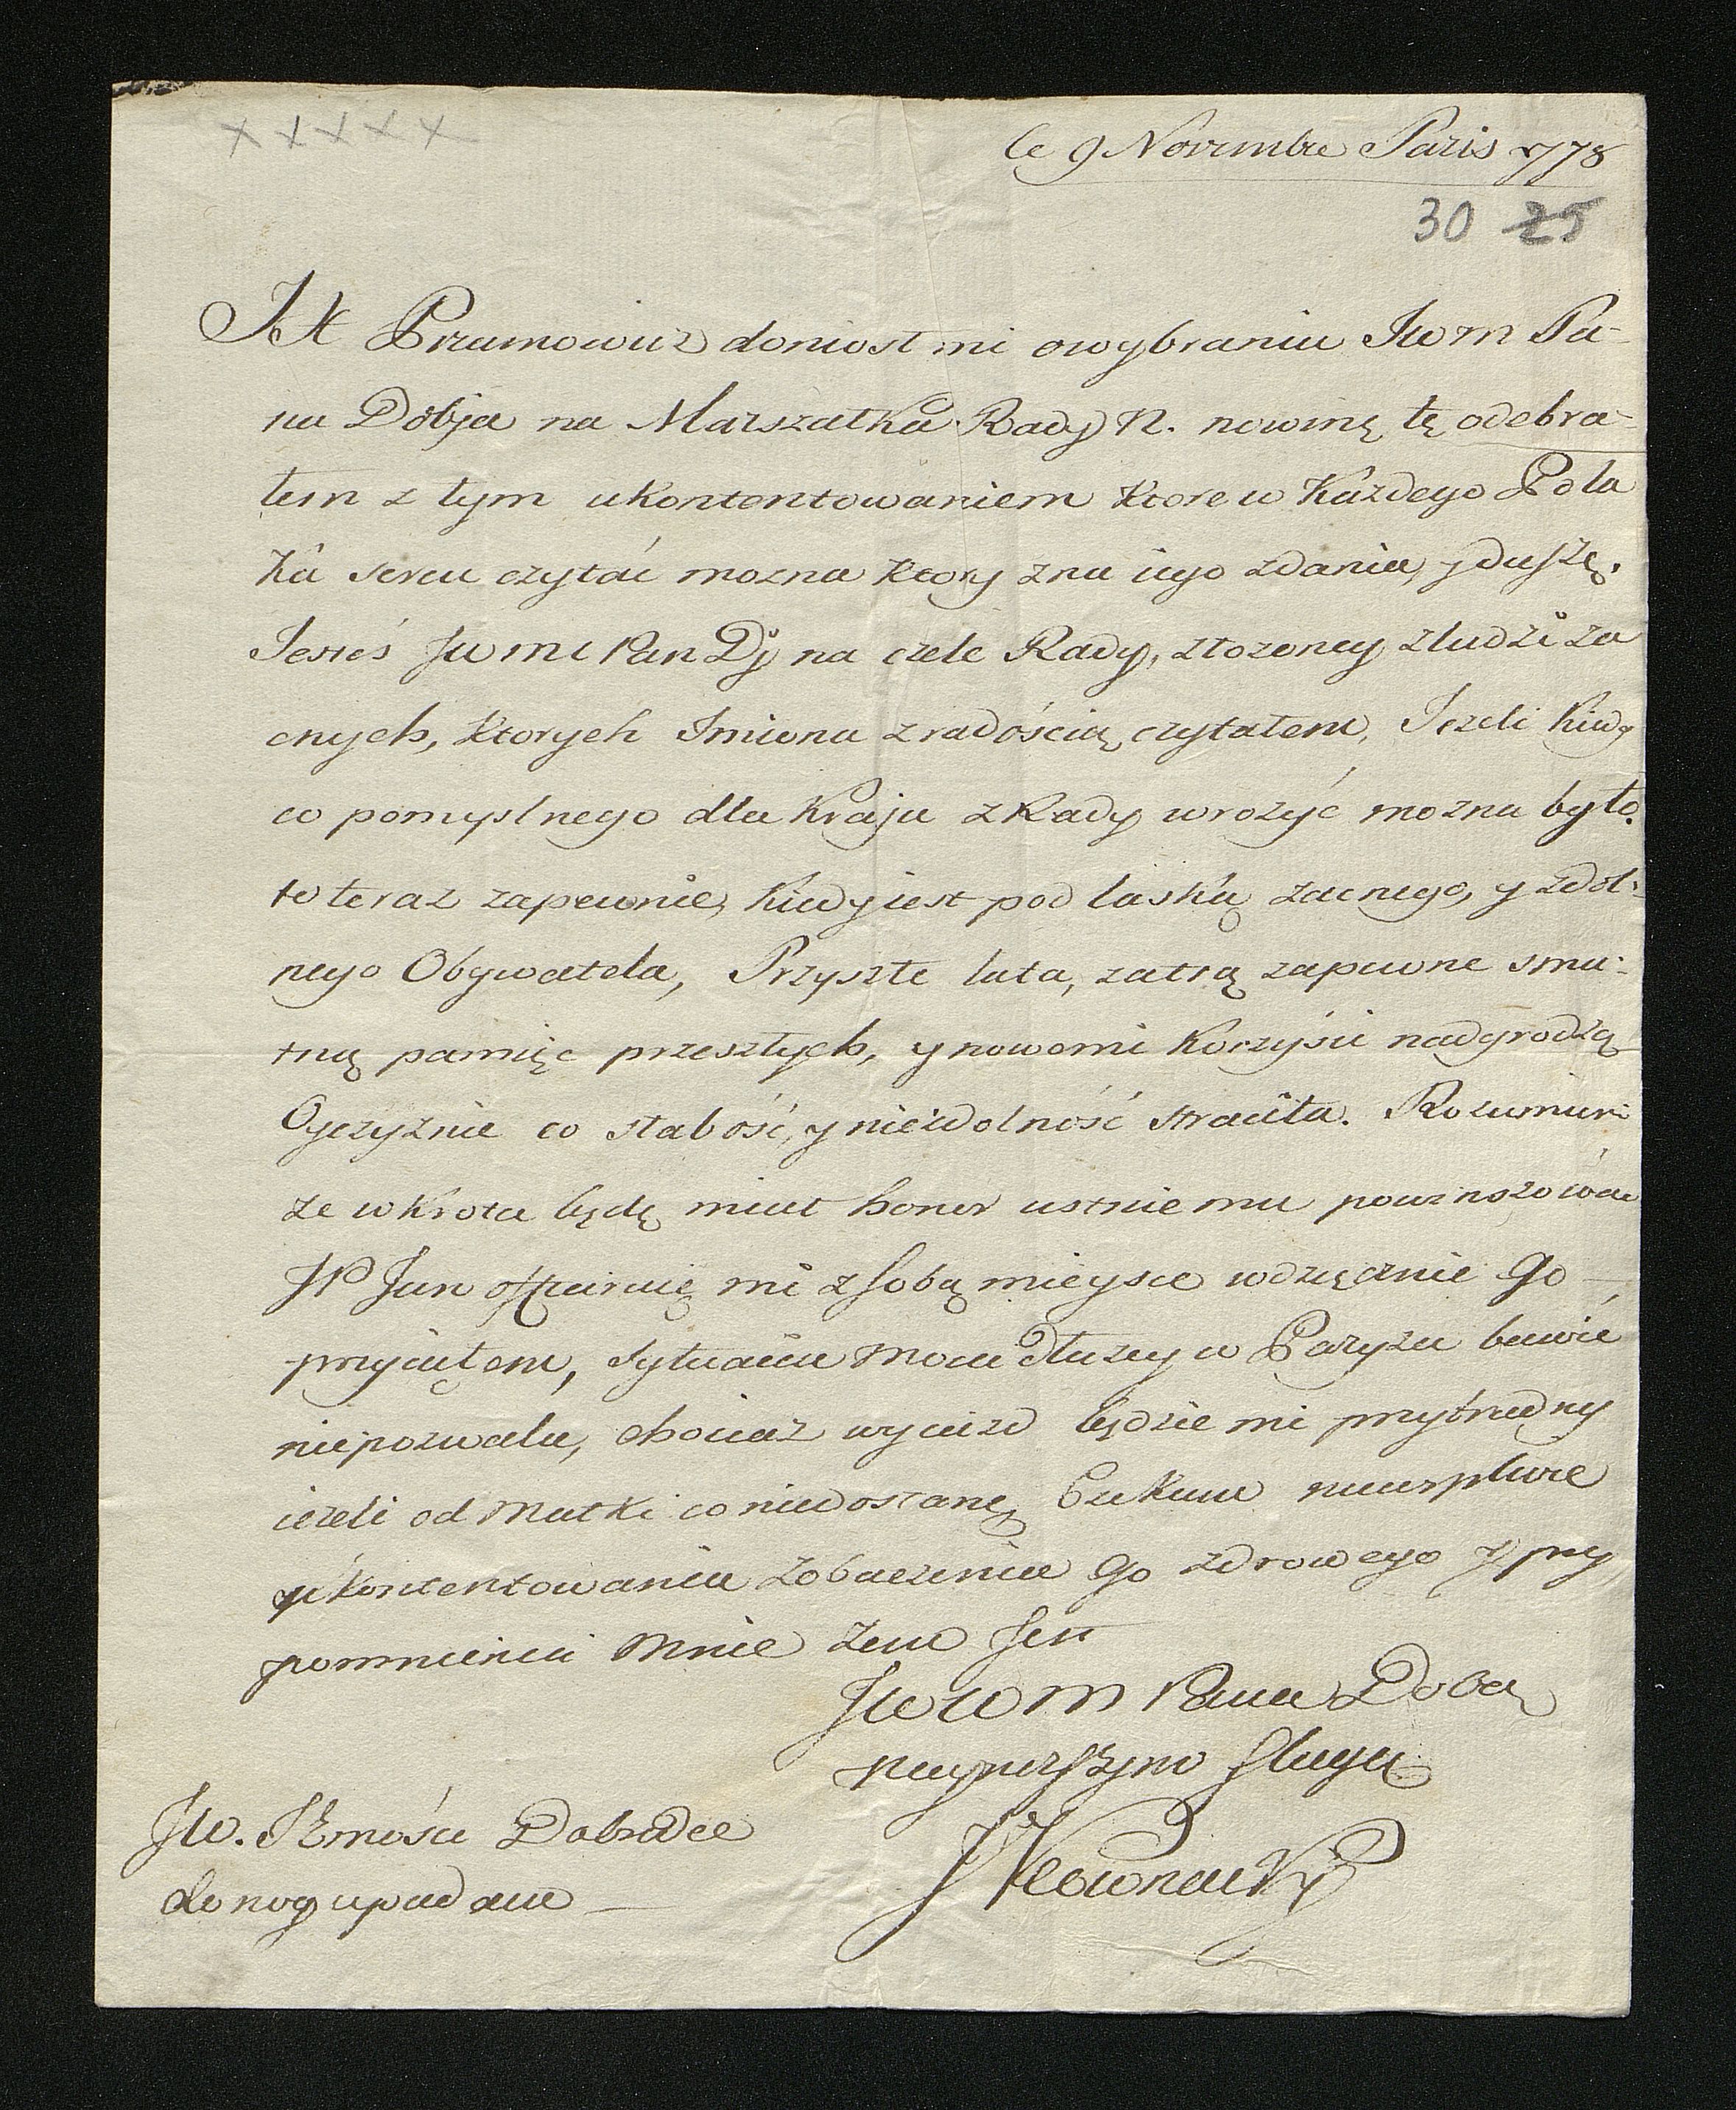 x x x x x
le 9 Novembre Paris 1778
30 25
JX Przemowicz doniosł mi o wybraniu Jwm Pa-
na Dobja na Marszałka Rady N. nowinę tę odebra-
łem z tym ukontentowaniem ktore w każdego Pola
ka sercu czytać mozna ktory zna iego zdania, y duszę.
Jesteś Jwmc Pan Dj na czele Rady, złozoney z ludzi za
cnych, ktorych Imiona z radością czytałem, Jezeli kiedy
co pomyslnego dla Kraju z Rady wrozyć mozna było.
to teraz zapewnie, kiedy iest pod laską zacnego, y zdol-
nego Obywatela, Przyszłe lata, zatrą zapewne smu-
tną pamięc przeszłych, y nowemi korzyści nadgrodzą
Oyczyznie co słabość, y niezdolność straciła. Rozumiem
ze wkrotce będę miał honor ustnie mu powinszować
JP Jun offiaruię mi z sobą mieysce wdzięcznie go
przyiąłem, sytuacia moia dłuzey w Paryzu bawić
niepozwala, chociaz wyiazd będzie mi przytrudny
iezeli od Matki co niedostanę, Czekam
ukontentowania zobaczenia go zdrowego y przy
pomnienia mnie zem jest
Jww m Pana Doba
naynizszym sluga
J Kownacki
Jw. Jmości Dobrdce
do nog upadam